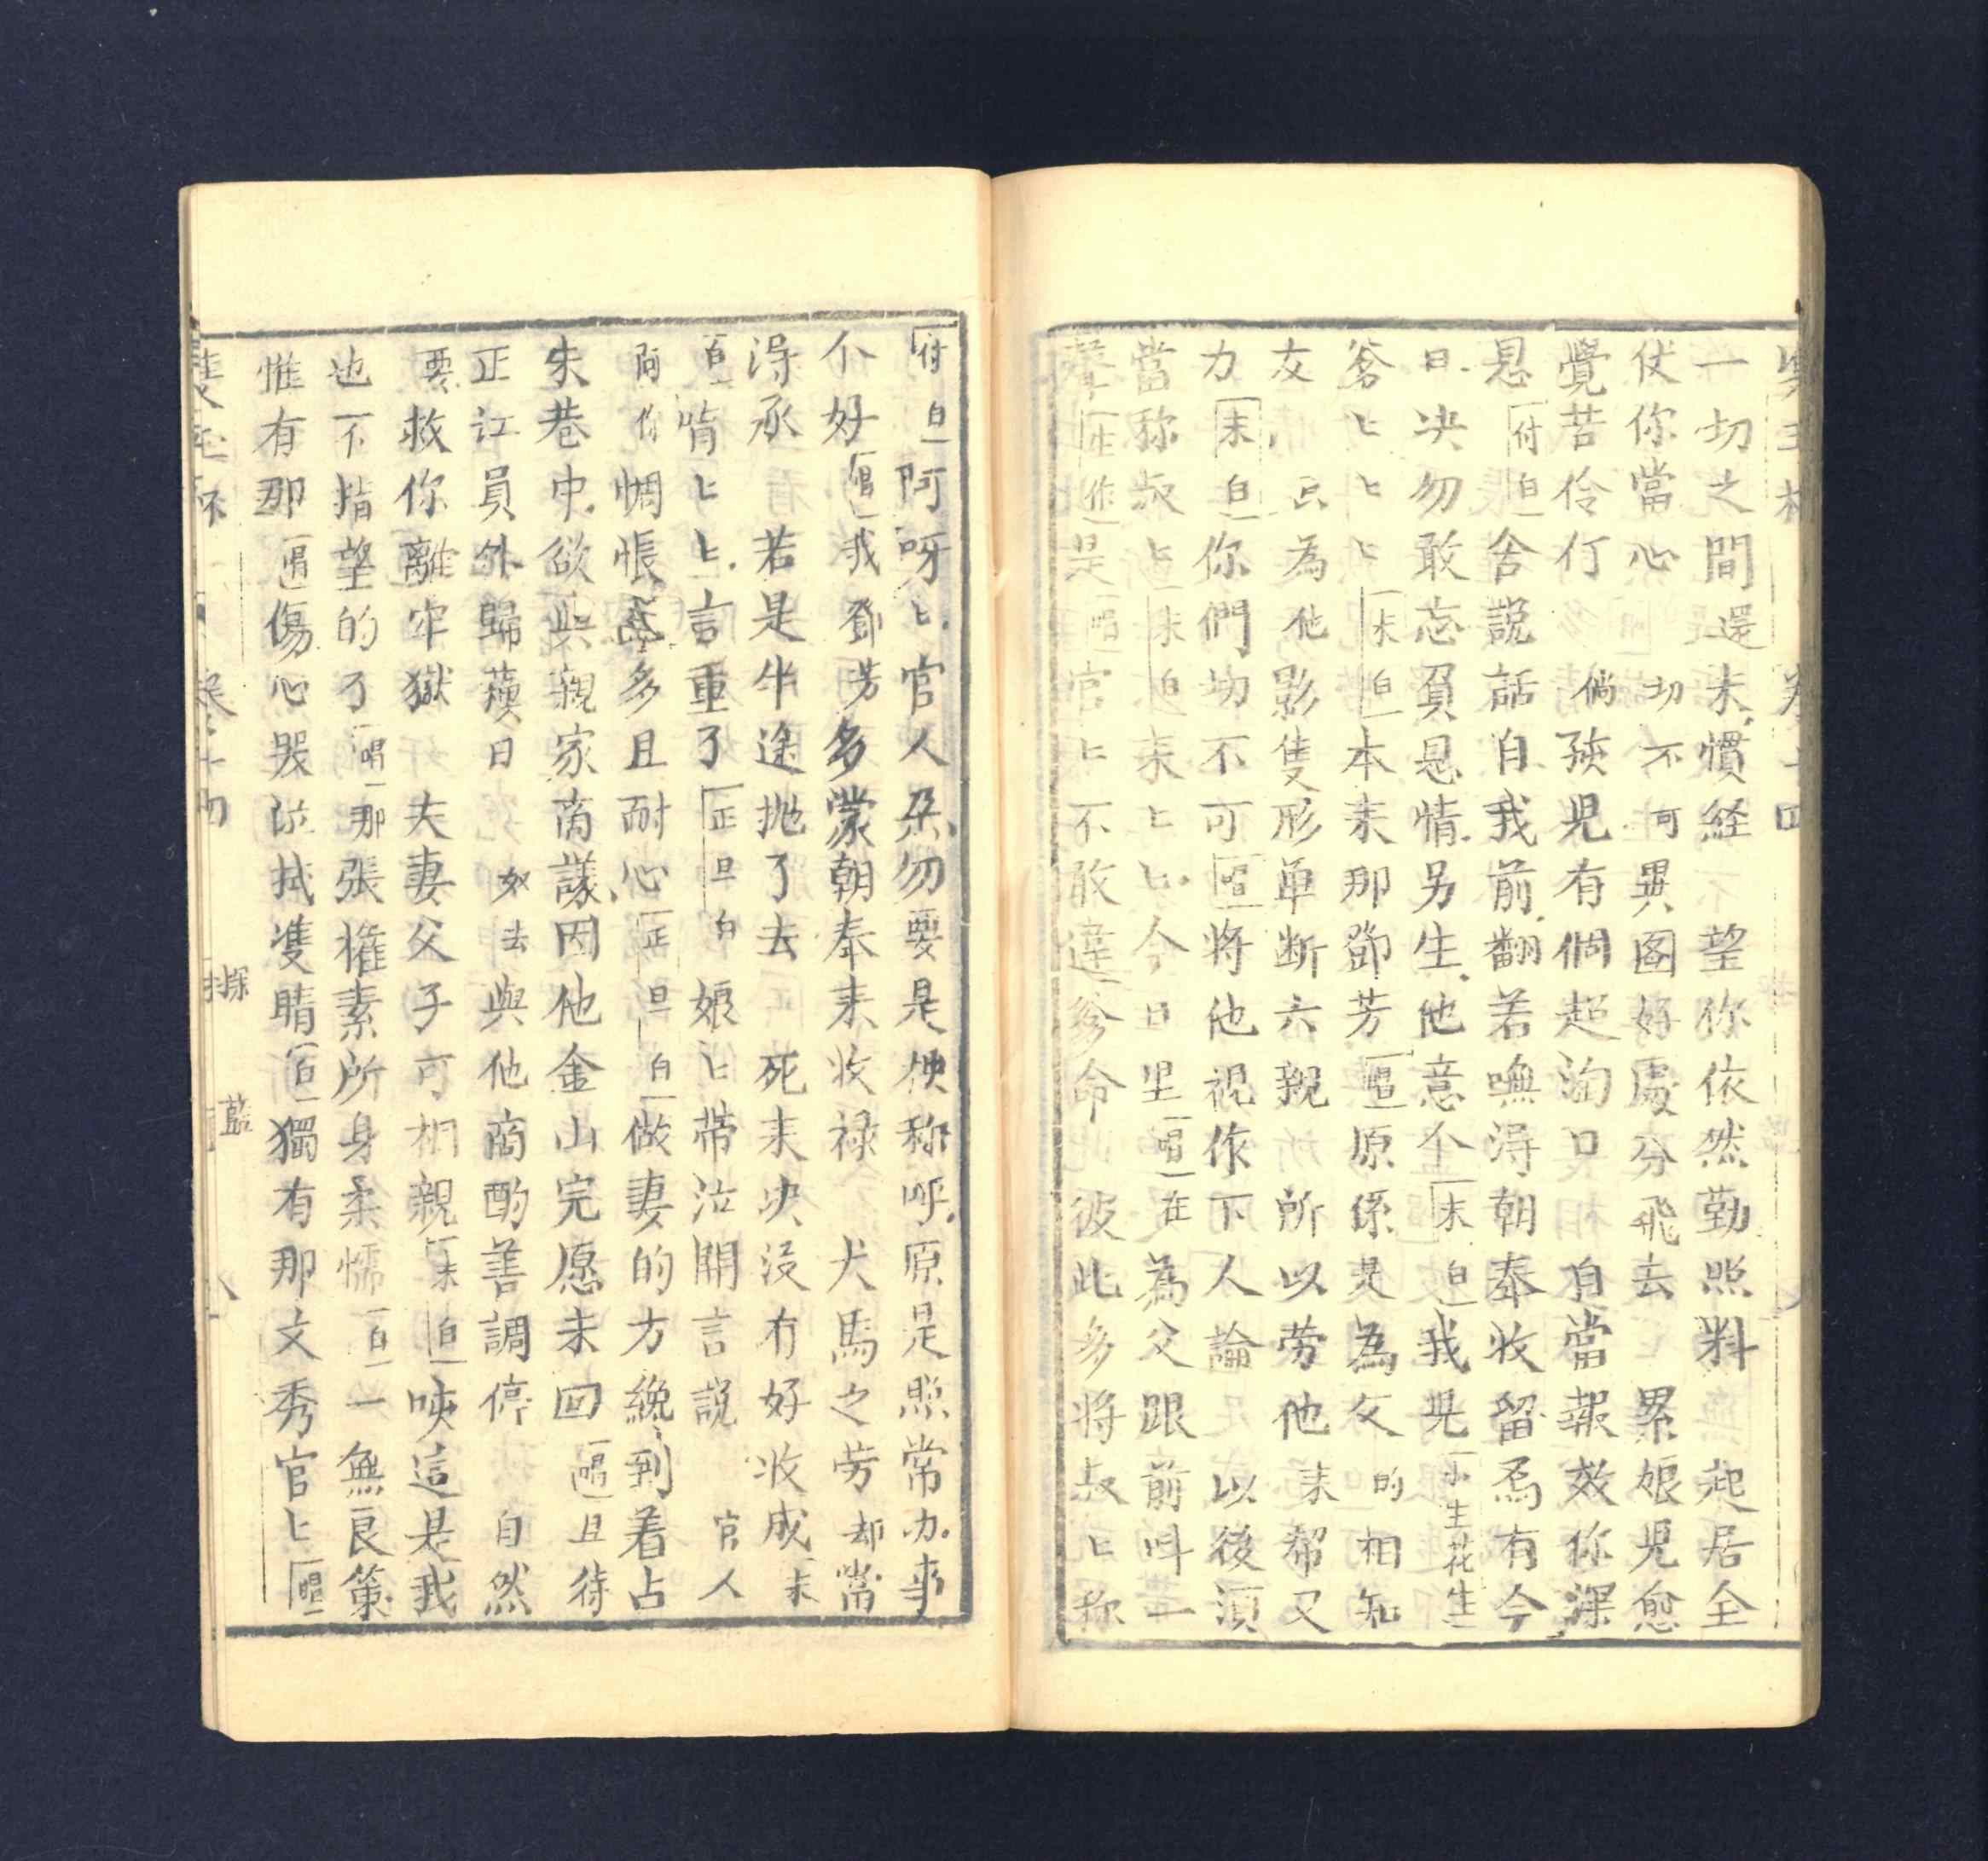 一切之間還未慣経　望你依然勤照料　起居全
仗你當心　切不可異圖好處分飛去　累娘兒愈
覺苦伶仃　倘孩兒有個超淘日　自當報效你深
恩付白舍說話自我前翻若嘸得朝奉收留焉有今
日决勿敢忘負恩情另生他意个末白我兒小生花生
爹匕匕匕末白本来那鄧芳唱原係是為父的相知
友　只為他影隻形单断六親　所以劳他来帮又
力末白你們切不可唱将他視作下人論　以後須
當称叔匕末白过来匕匕今日里唱在為父跟前呌一
聲生作是唱官匕不敢違爹命　彼此多将叔匕称
付白阿呀匕官人朶勿要是梗称呼原是照常办事
个好唱我鄧芳多蒙朝奉来收禄　犬馬之劳却當
得承　若是半途抛了去　死来决没有好收成末
白悄匕匕言重了正旦白娘匕帶泣開言説　官人
阿你惆悵　多且耐心正旦白做妻的方纔到着占
朱巷中欲與親家商議因他金山完愿未回唱且待
正江員外歸蘋日　如去與他商酌善調停　自然
要救你離牢獄　夫妻父子可相親末白唊這是我
也不指望的了唱那張㩁素所身柔懦白一無良策
惟有那唱傷心哭泣拭雙睛白獨有那文秀官匕唱
卷十四
探　藍